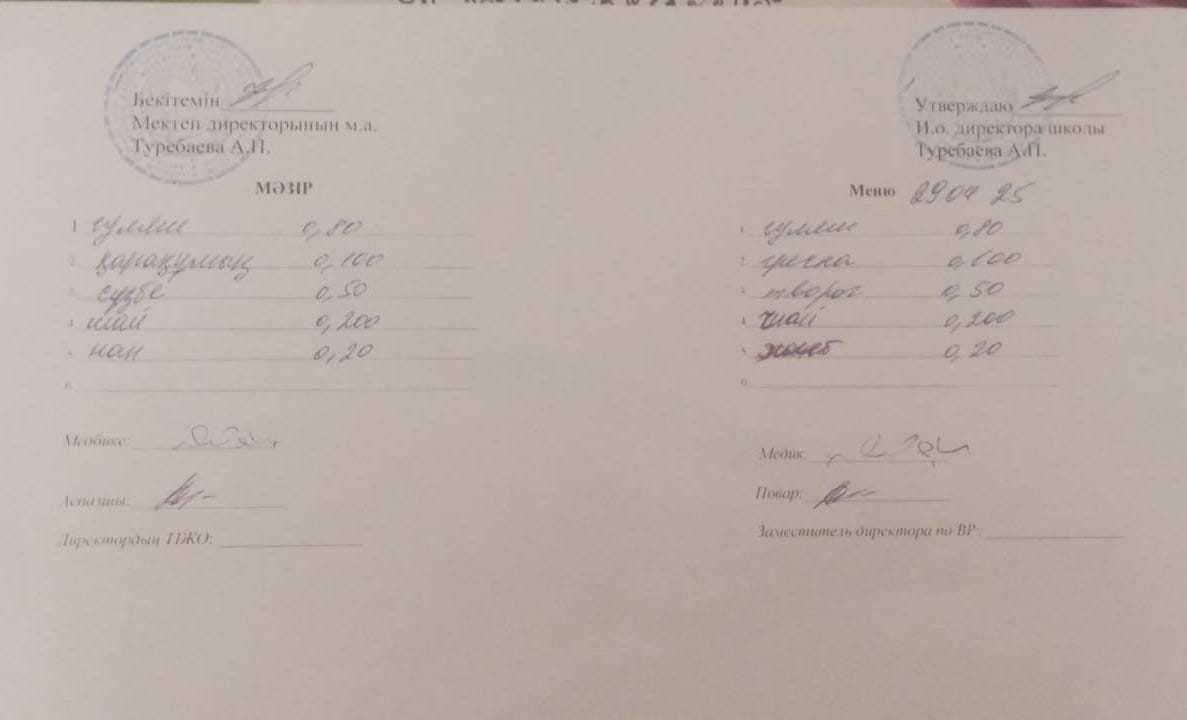 Бекітемін
Мектеп директорының м.а.
Туребаева А.П.
МӘЗІР
1 гуляш 0,80
2 қарақұмық 0,100
3 сүзбе 0,50
4 шай 0,200
5 нан 0,20
6
Медбике:
Аспазшы:
Директордың ТЖО:
Утверждаю
И.о. директора школы
Туребаева А.П.
Меню 29 04 25
1 гуляш 0,80
2 гречка 0,100
3 творог 0,50
4 чай 0,200
5 хлеб 0,20
6
Медик:
Повар:
Заместитель директора по ВР: